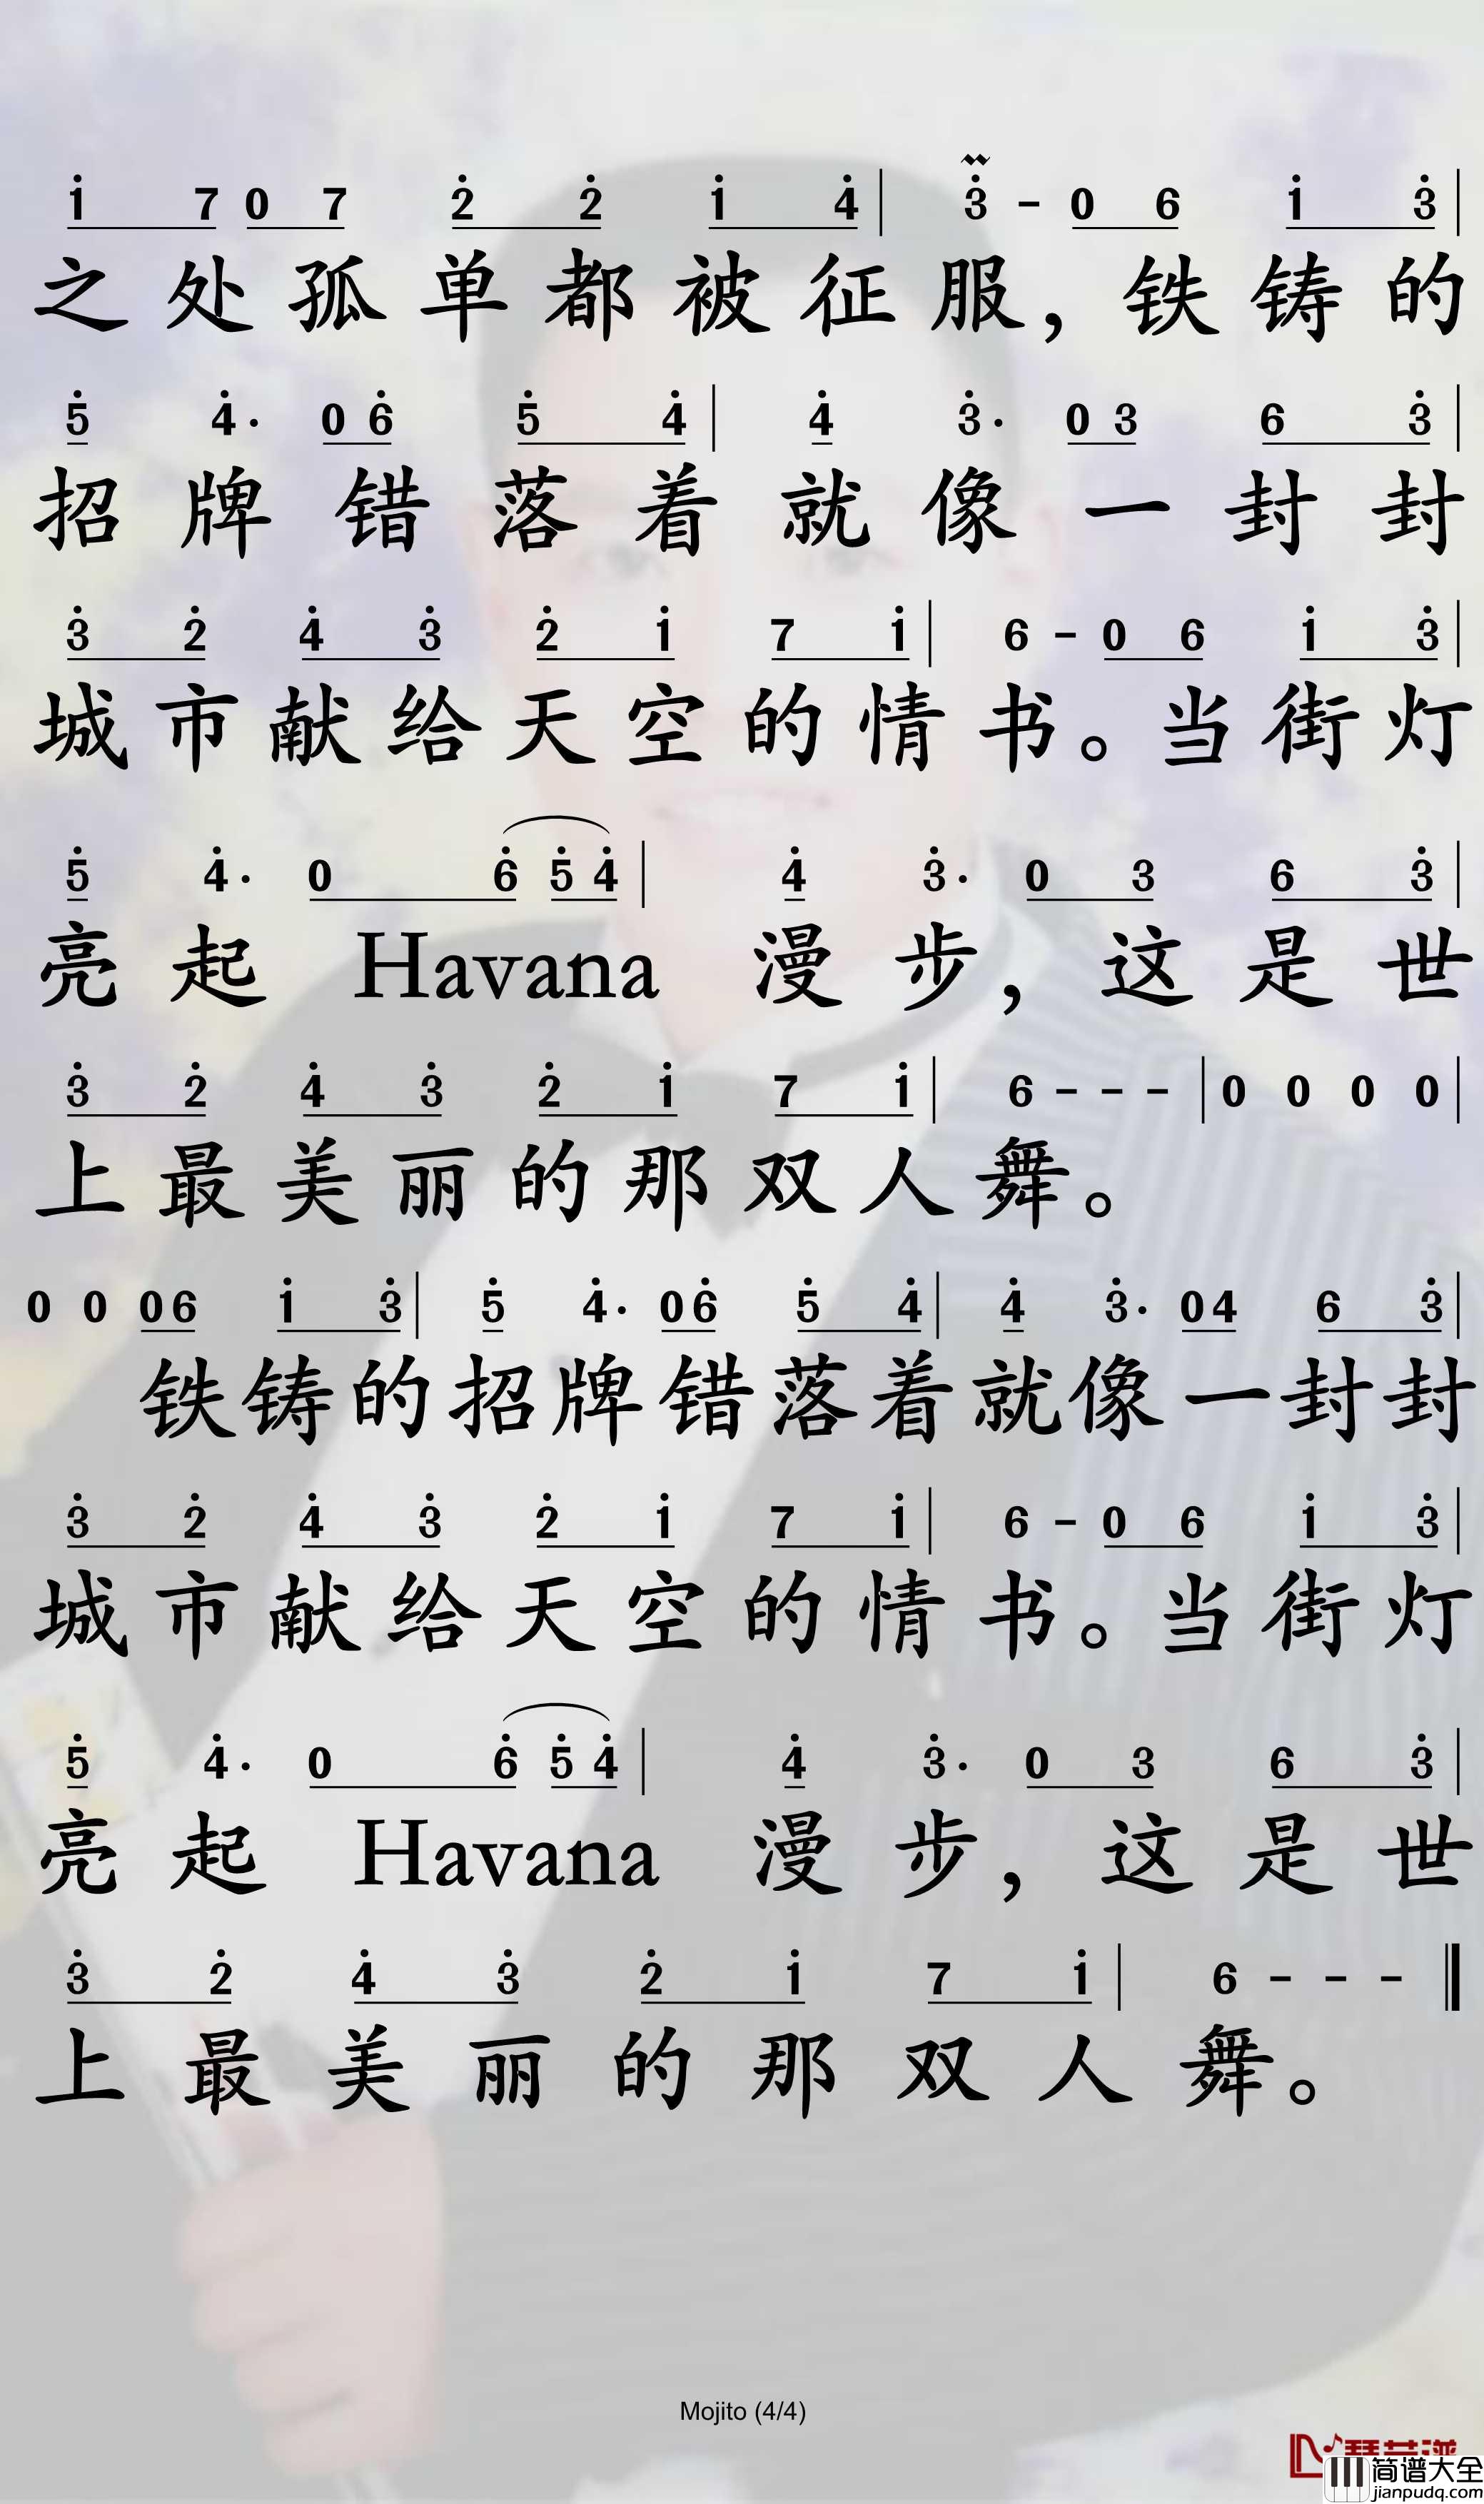 1 7 0 7 2 2 1 4 | 3 - 0 6 1 3 |
之处孤单都被征服，铁铸的
5 4. 0 6 5 4 | 4 3. 0 3 6 3 |
招牌错落着就像一封封
3 2 4 3 2 1 7 1 | 6 - 0 6 1 3 |
城市献给天空的情书。当街灯
5 4. 0 6 5 4 | 4 3. 0 3 6 3 |
亮起 Havana 漫步，这是世
3 2 4 3 2 1 7 1 | 6 - - - | 0 0 0 0 |
上最美丽的那双人舞。
0 0 0 6 1 3 | 5 4. 0 6 5 4 | 4 3. 0 4 6 3 |
铁铸的招牌错落着就像一封封
3 2 4 3 2 1 7 1 | 6 - 0 6 1 3 |
城市献给天空的情书。当街灯
5 4. 0 6 5 4 | 4 3. 0 3 6 3 |
亮起 Havana 漫步，这是世
3 2 4 3 2 1 7 1 | 6 - - - ‖
上最美丽的那双人舞。
Mojito (4/4)
简谱大全
jianpudq.com